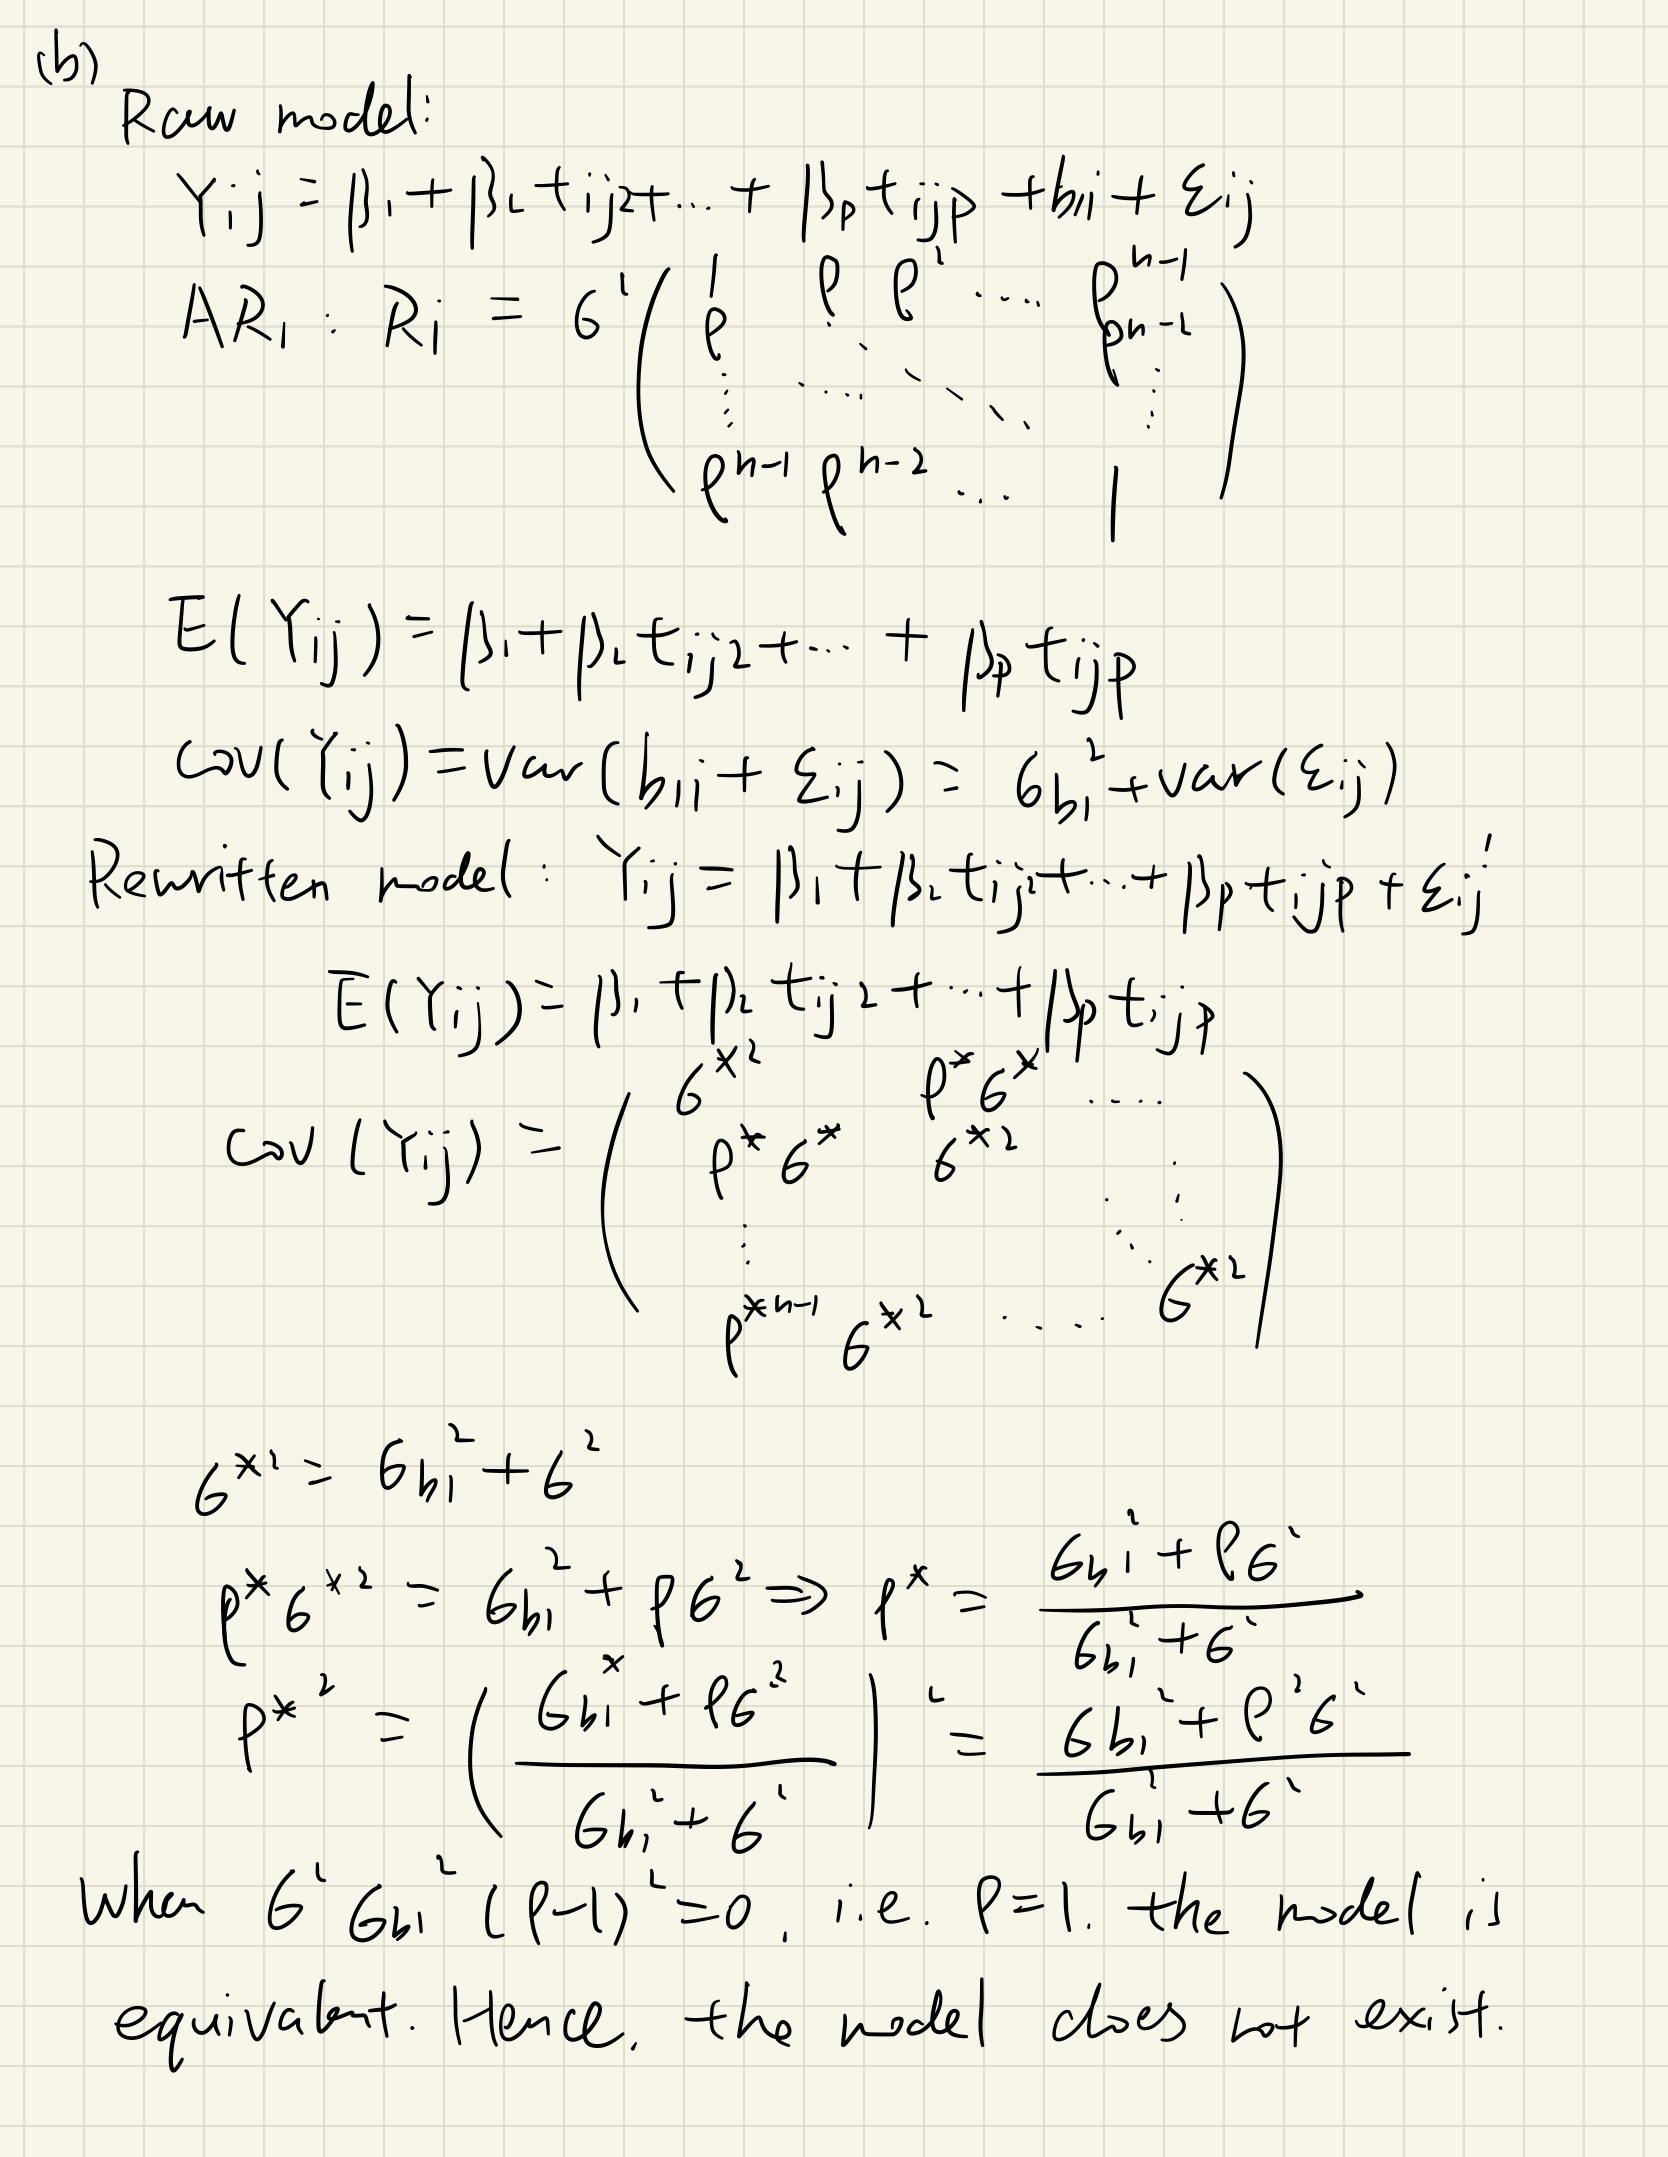 (b)
Raw model:
Yij = β1 + β2 tij2 + ... + βp tijp + b1i + εij
AR1 : Ri = σ² ( 1 ρ ρ² .... ρ^n-1
ρ ρ^n-2
ρ^n-1 ρ^n-2 ... 1 )
E(Yij) = β1 + β2 tij2 + ... + βp tijp
Cov(Yij) = Var(b1i + εij) = σb1² + Var(εij)
Rewritten model: Yij = β1 + β2 tij2 + ... + βp tijp + εij'
E(Yij) = β1 + β2 tij2 + ... + βp tijp
Cov(Yij) = ( σ*² ρ*σ* ....
ρ*σ* σ*²
ρ*^n-1 σ*² .... σ*² )
σ*² = σb1² + σ²
ρ*σ*² = σb1² + ρσ² ⇒ ρ* = (σb1² + ρσ²) / (σb1² + σ²)
ρ*² = ( (σb1² + ρσ²) / (σb1² + σ²) )² = (σb1² + ρ²σ²) / (σb1² + σ²)
When σ²σb1²(ρ-1)² = 0, i.e. ρ=1. the model is
equivalent. Hence, the model does not exist.